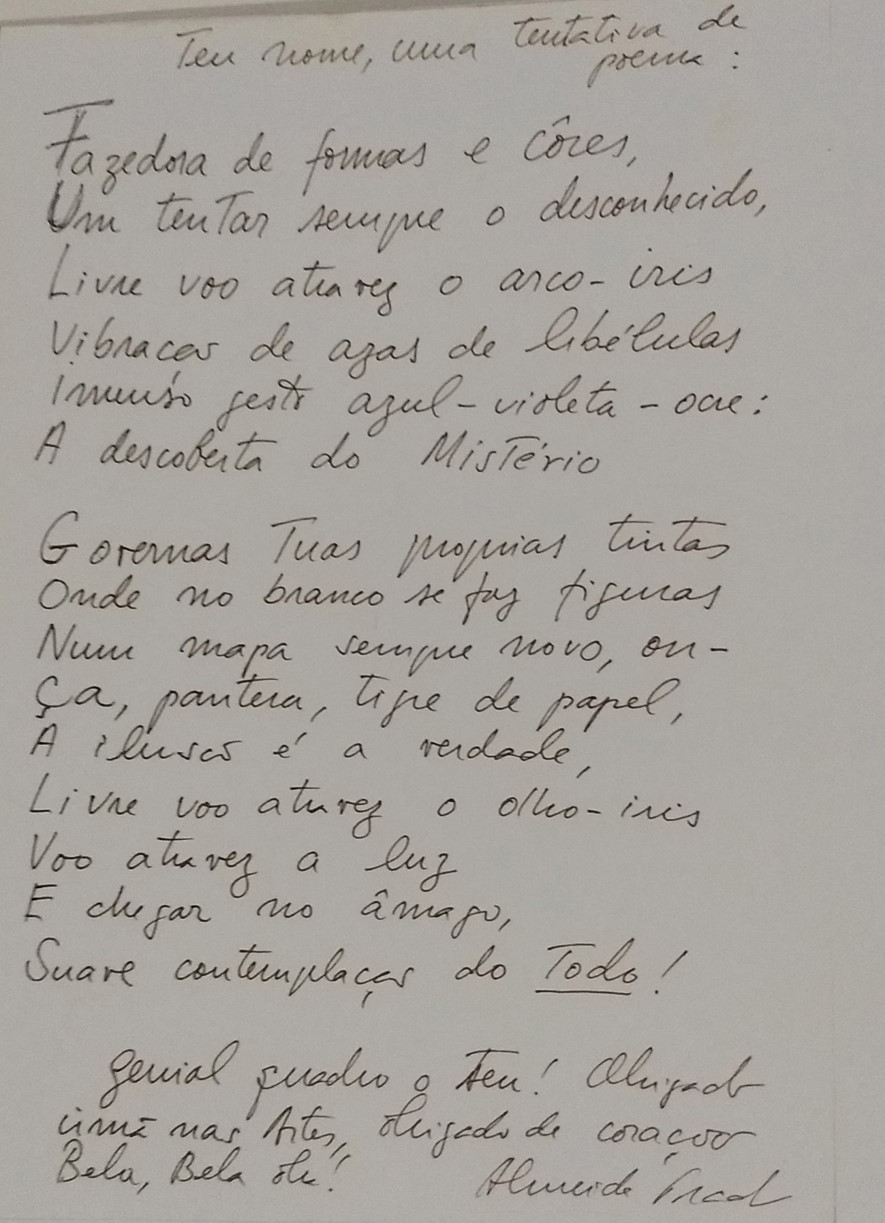 Teu nome, uma tentativa de
poema:
Fazedora de formas e côres,
Um tentar sempre o desconhecido,
Livre voo atravez o arco-iris
Vibração de azas de libélulas
Imenso gesto azul-violeta-ocre:
A descoberta do Mistério
Governas Tuas proprias tintas
Onde no branco se faz figuras
Num mapa sempre novo, on-
Ça, pantera, tigre de papel,
A ilusão é a verdade,
Livre voo atravez o olho-iris
Voo atravez a luz
E chegar no âmago,
Suave contemplação do Todo!
genial quadro o teu! Obrigado
irmã nas Artes, obrigado de coração
Bela, Bela
Almeida Prado